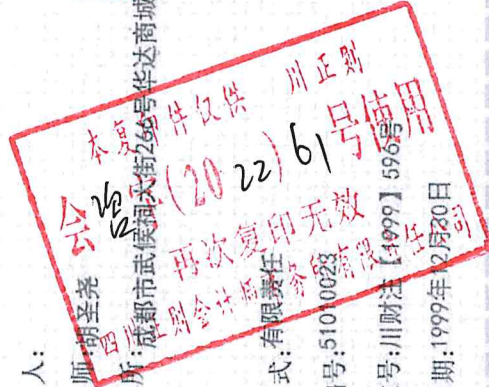 人:
师:胡圣尧
所:成都市武侯祠大街266号华达商城
式:有限责任
号:51010023
号:川财注【1999】596号
期:1999年12月30日
本复印件仅供 川正则
会 (2022)61号使用
再次复印无效
四川正则会计师事务所有限责任公司